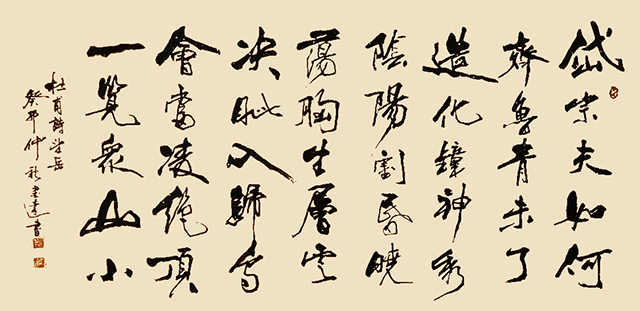 岱宗夫如何
齊魯青未了
造化鐘神秀
陰陽割昏曉
蕩胸生層雲
决眦入歸鳥
會當凌絶頂
一覽衆山小
杜甫詩望岳
癸卯仲秋書